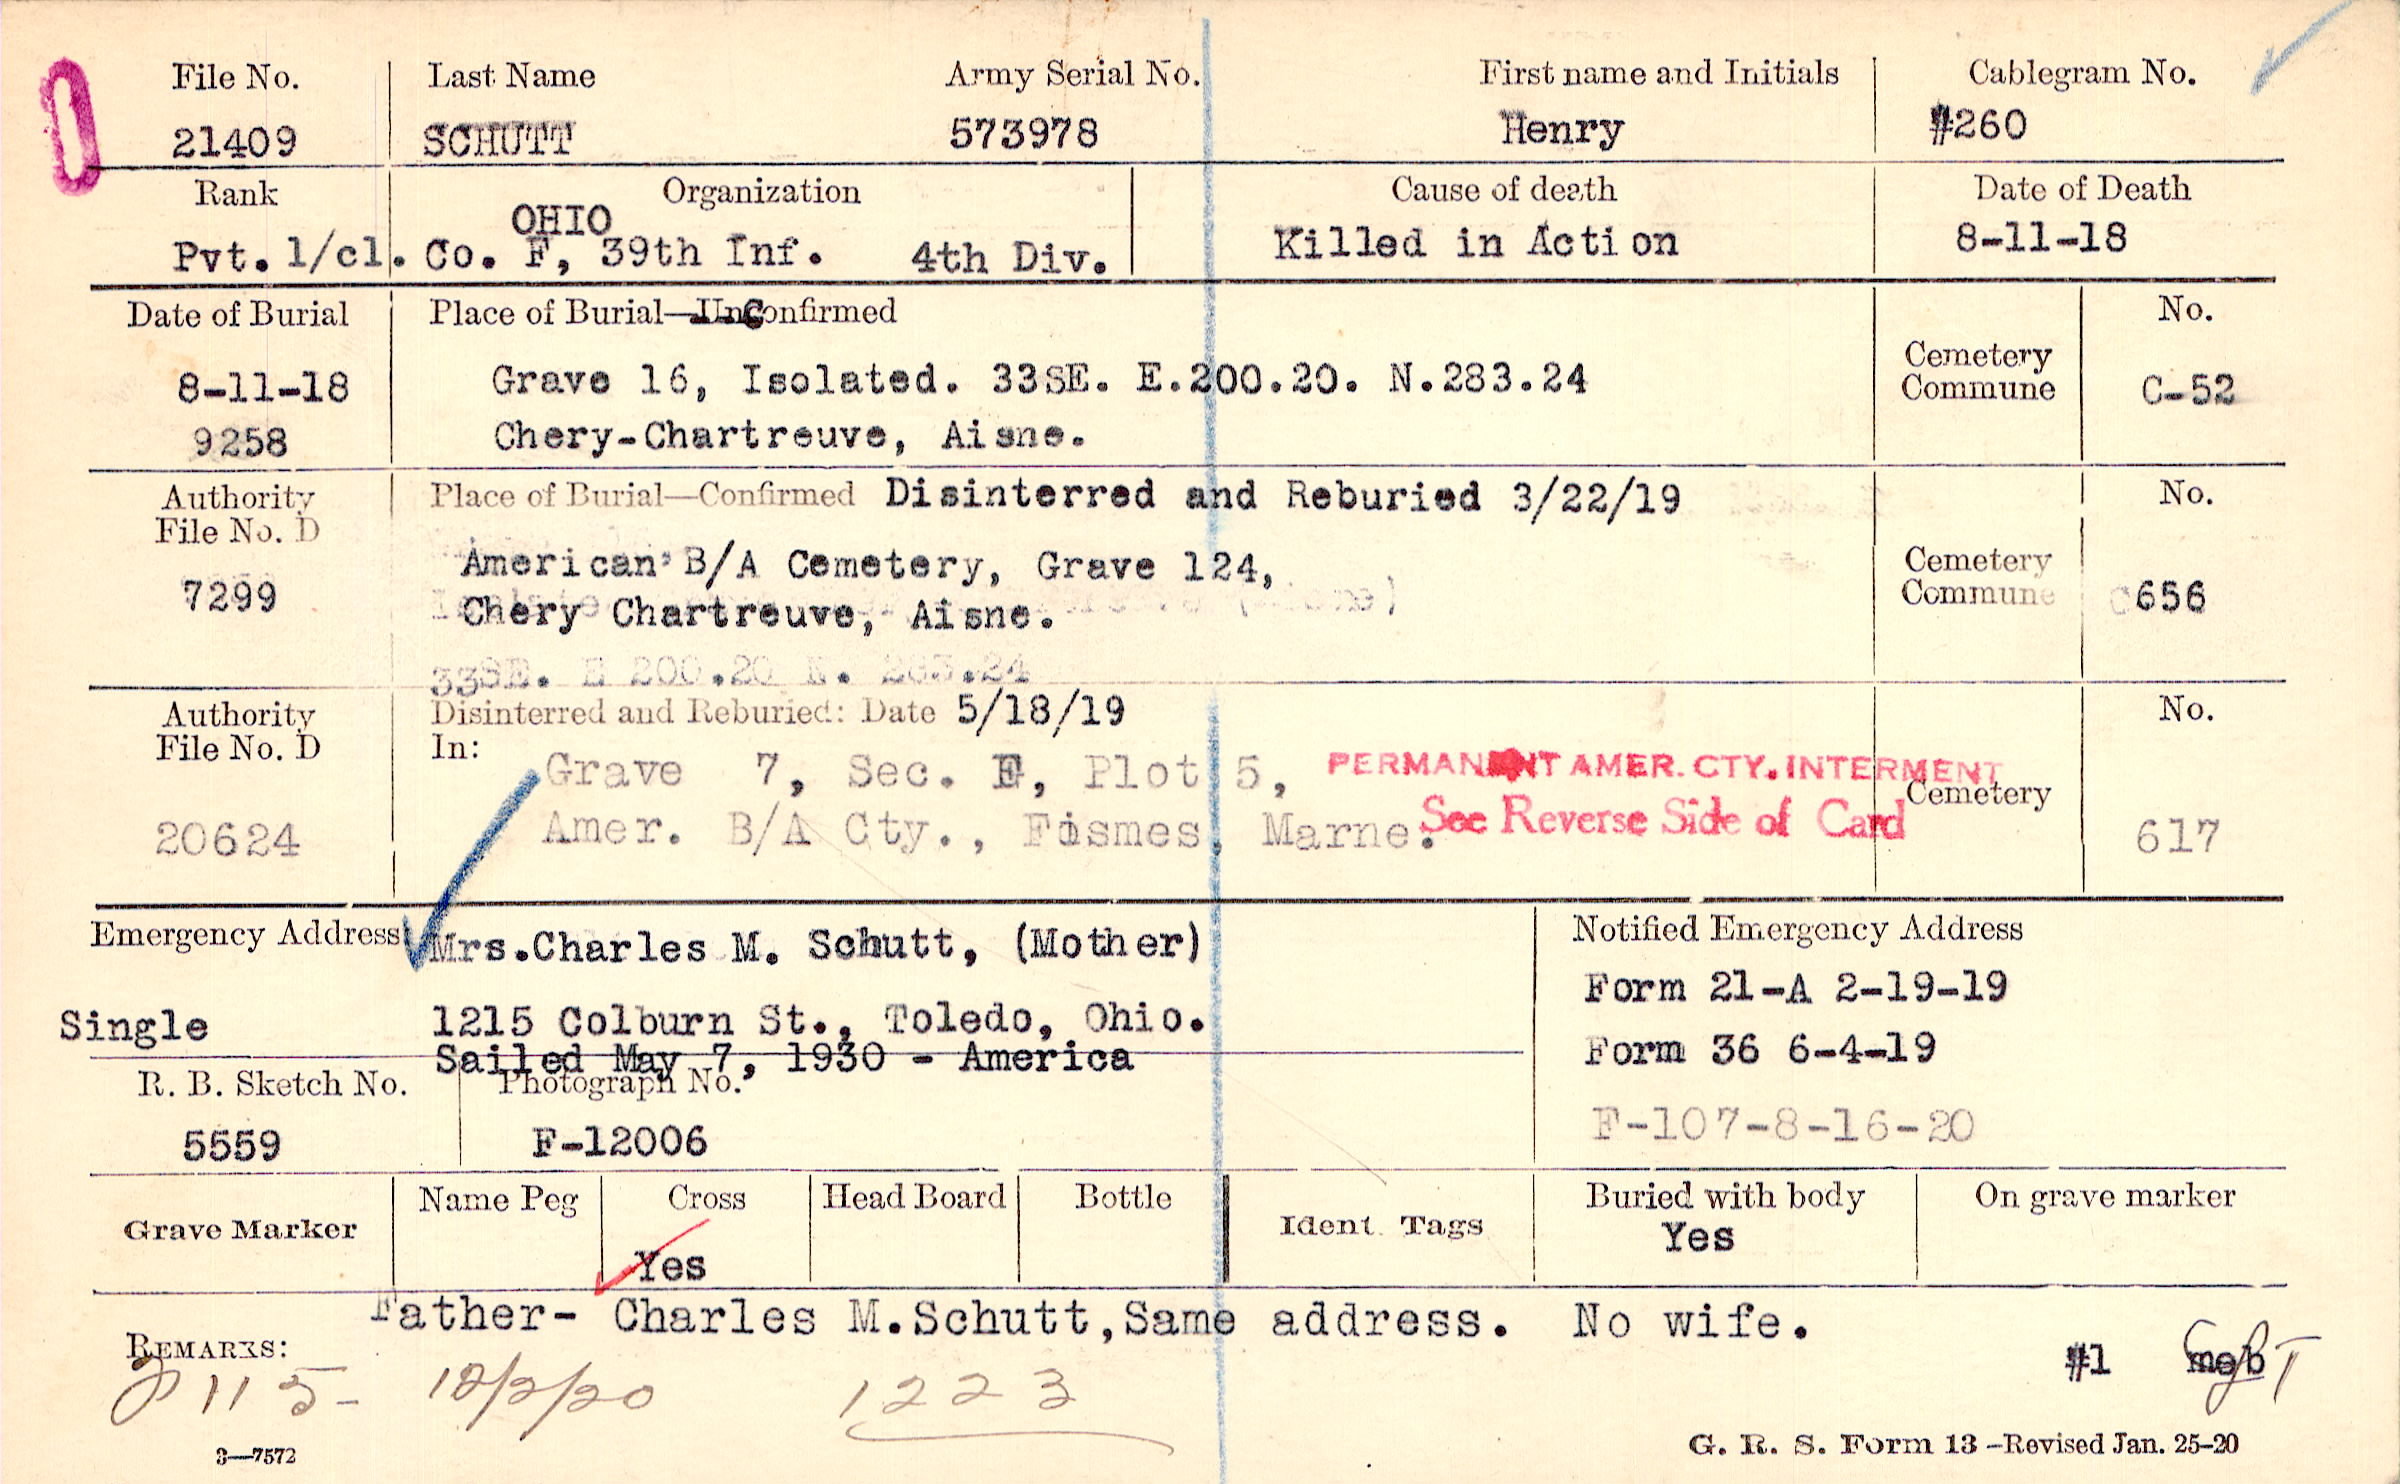 File No. Last Name Army Serial No. First name and Initials Cablegram No.
21409 SCHUTT 573978 Henry #260
Rank Organization Cause of death Date of Death
OHIO
Pvt. 1/cl. Co. F, 39th Inf. 4th Div. Killed in Action 8-11-18
Date of Burial Place of Burial—UnConfirmed No.
Cemetery
8-11-18 Grave 16, Isolated. 33SE. E.200.20. N.283.24 Commune C-52
9258 Chery-Chartreuve, Aisne.
Authority Place of Burial—Confirmed Disinterred and Reburied 3/22/19 No.
File No. D
American B/A Cemetery, Grave 124, Cemetery
7299 Chery Chartreuve, Aisne. Commune C656
33SE. E 200.20 N. 283.24
Authority Disinterred and Reburied: Date 5/18/19 No.
File No. D In:
Grave 7, Sec. E, Plot 5, PERMANENT AMER. CTY. INTERMENT
Cemetery
20624 Amer. B/A Cty., Fismes, Marne. See Reverse Side of Card 617
Emergency Address Mrs.Charles M. Schutt, (Mother) Notified Emergency Address
Form 21-A 2-19-19
Single 1215 Colburn St., Toledo, Ohio.
Sailed May 7, 1930 - America Form 36 6-4-19
R. B. Sketch No. Photograph No.
5559 F-12006 F-107-8-16-20
Grave Marker Name Peg Cross Head Board Bottle Ident. Tags Buried with body On grave marker
Yes Yes
Father- Charles M.Schutt,Same address. No wife.
REMARKS: #1 meb
115- 12/2/20 1223
3—7572 G. R. S. Form 13 –Revised Jan. 25–20